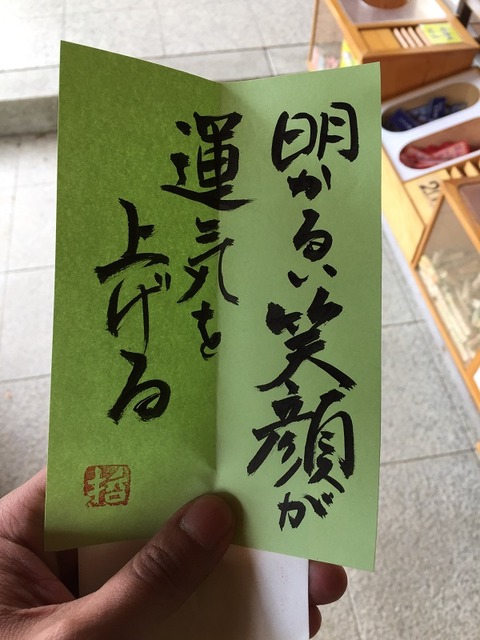 明かるい笑顔が
運気を
上げる